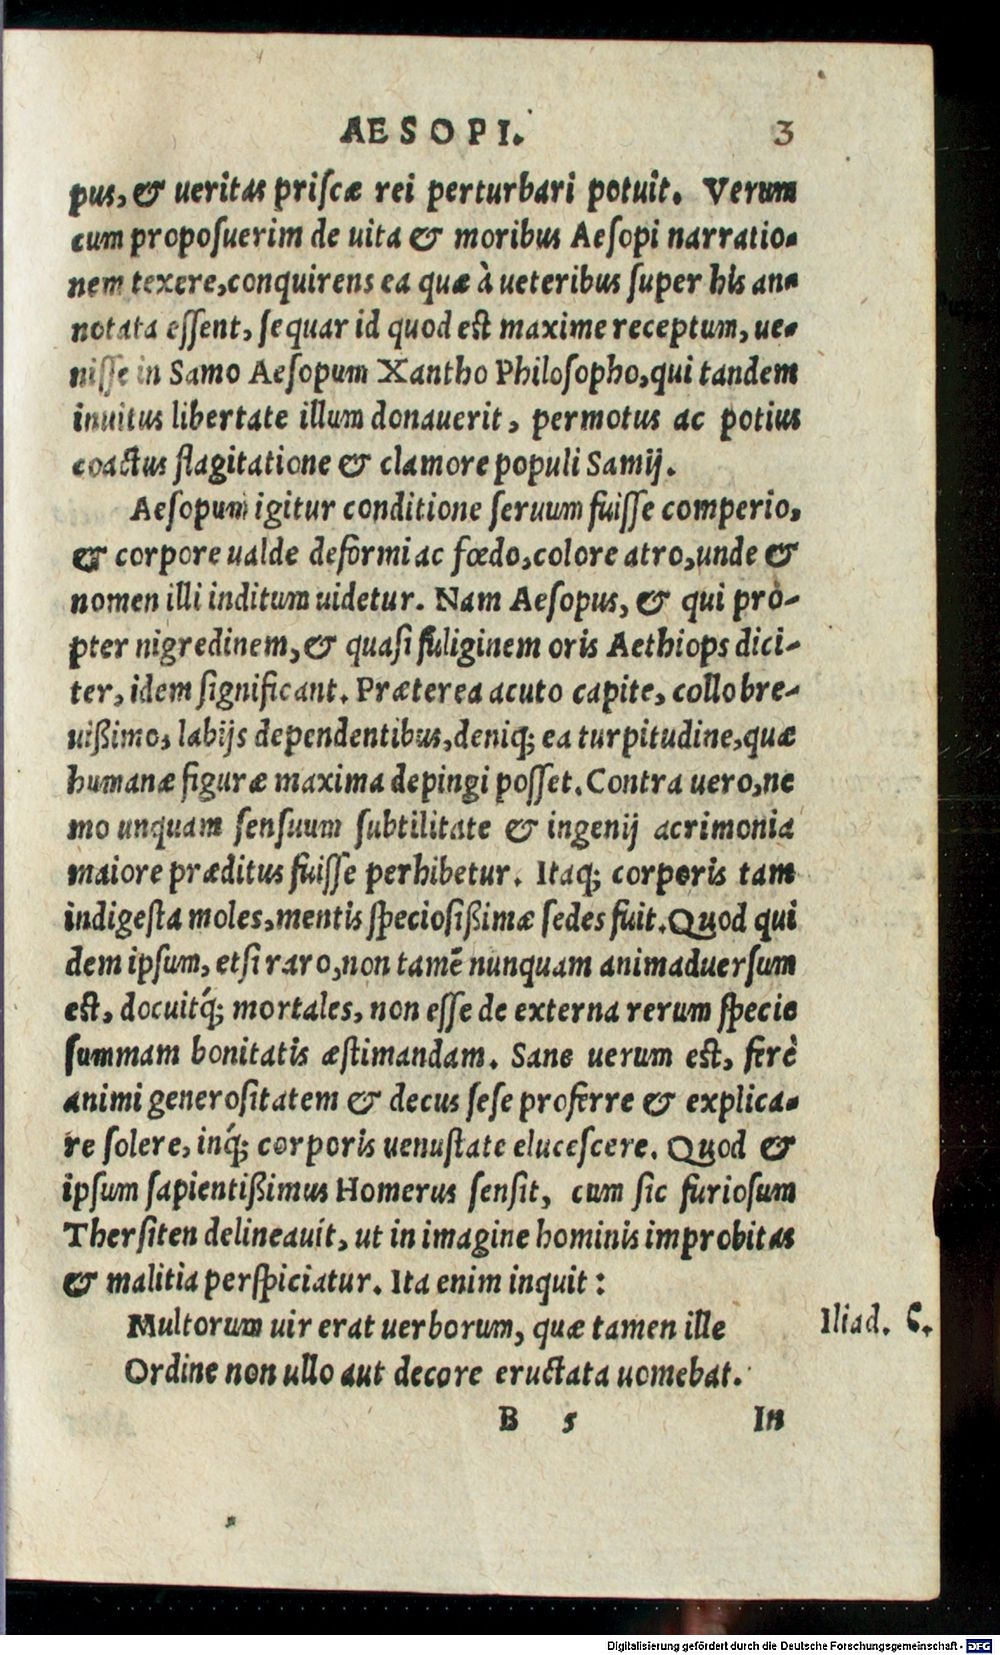 AESOPI. 3
pus, & ueritas priscæ rei perturbari potuit. Verum
cum proposuerim de uita & moribus Aesopi narratio-
nem texere, conquirens ea quæ à ueteribus super his an-
notata essent, sequar id quod est maxime receptum, ue-
nisse in Samo Aesopum Xantho Philosopho, qui tandem
inuitus libertate illum donauerit, permotus ac potius
coactus flagitatione & clamore populi Samij.
Aesopum igitur conditione seruum fuisse comperio,
& corpore ualde deformi ac fœdo, colore atro, unde &
nomen illi inditum uidetur. Nam Aesopus, & qui pro-
pter nigredinem, & quasi fuliginem oris Aethiops dici-
ter, idem significant. Præterea acuto capite, collo bre-
uißimo, labijs dependentibus, deniq; ea turpitudine, quæ
humanæ figuræ maxima depingi posset. Contra uero, ne
mo unquam sensuum subtilitate & ingenij acrimonia
maiore præditus fuisse perhibetur. Itaq; corporis tam
indigesta moles, mentis speciosißimæ sedes fuit. Quod qui
dem ipsum, etsi raro, non tamē nunquam animaduersum
est, docuitq́; mortales, non esse de externa rerum specie
summam bonitatis æstimandam. Sane uerum est, ferè
animi generositatem & decus sese proferre & explica-
re solere, inq́; corporis uenustate elucescere. Quod &
ipsum sapientißimus Homerus sensit, cum sic furiosum
Thersiten delineauit, ut in imagine hominis improbitas
& malitia perspiciatur. Ita enim inquit:
Multorum uir erat uerborum, quæ tamen ille
Iliad. ϐ.
Ordine non ullo aut decore eructata uomebat.
B 5 In
Digitalisierung gefördert durch die Deutsche Forschungsgemeinschaft - DFG